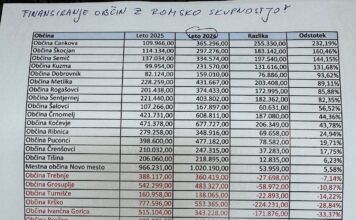 FINANSIRANJE OBČIN Z ROMSKO SKUPNOSTJO
Občina Leto 2025 Leto 2026 Razlika Odstotek
Občina Cankova 109.966,00 365.296,00 255.330,00 232,19%
Občina Škocjan 114.134,00 297.276,00 183.142,00 160,46%
Občina Semič 137.034,00 334.574,00 197.540,00 144,15%
Občina Kuzma 99.954,00 231.670,00 131.716,00 131,68%
Občina Dobrovnik 82.124,00 159.010,00 76.886,00 93,62%
Občina Metlika 228.259,00 431.667,00 203.408,00 89,11%
Občina Rogašovci 201.438,00 374.435,00 172.997,00 85,88%
Občina Šentjernej 221.440,00 403.802,00 182.362,00 82,35%
Občina Šalovci 107.256,00 167.887,00 60.631,00 56,52%
Občina Črnomelj 421.731,00 608.811,00 187.080,00 44,36%
Občina Kočevje 471.378,00 677.727,00 206.349,00 43,78%
Občina Ribnica 279.258,00 348.916,00 69.658,00 24,94%
Občina Puconci 398.600,00 477.182,00 78.582,00 19,71%
Občina Črenšovci 210.012,00 247.357,00 37.345,00 17,78%
Občina Tišina 206.060,00 218.895,00 12.835,00 6,23%
Mestna občina Novo mesto 966.231,00 1.020.190,00 53.959,00 5,58%
Občina Trebnje 388.117,00 360.419,00 -27.698,00 -7,14%
Občina Grosuplje 542.299,00 483.327,00 -58.972,00 -10,87%
Občina Turnišče 160.958,00 138.065,00 -22.893,00 -14,22%
Občina Krško 777.596,00 553.355,00 -224.241,00 -28,84%
Občina Ivančna Gorica 515.104,00 343.228,00 -171.876,00 -33,37%